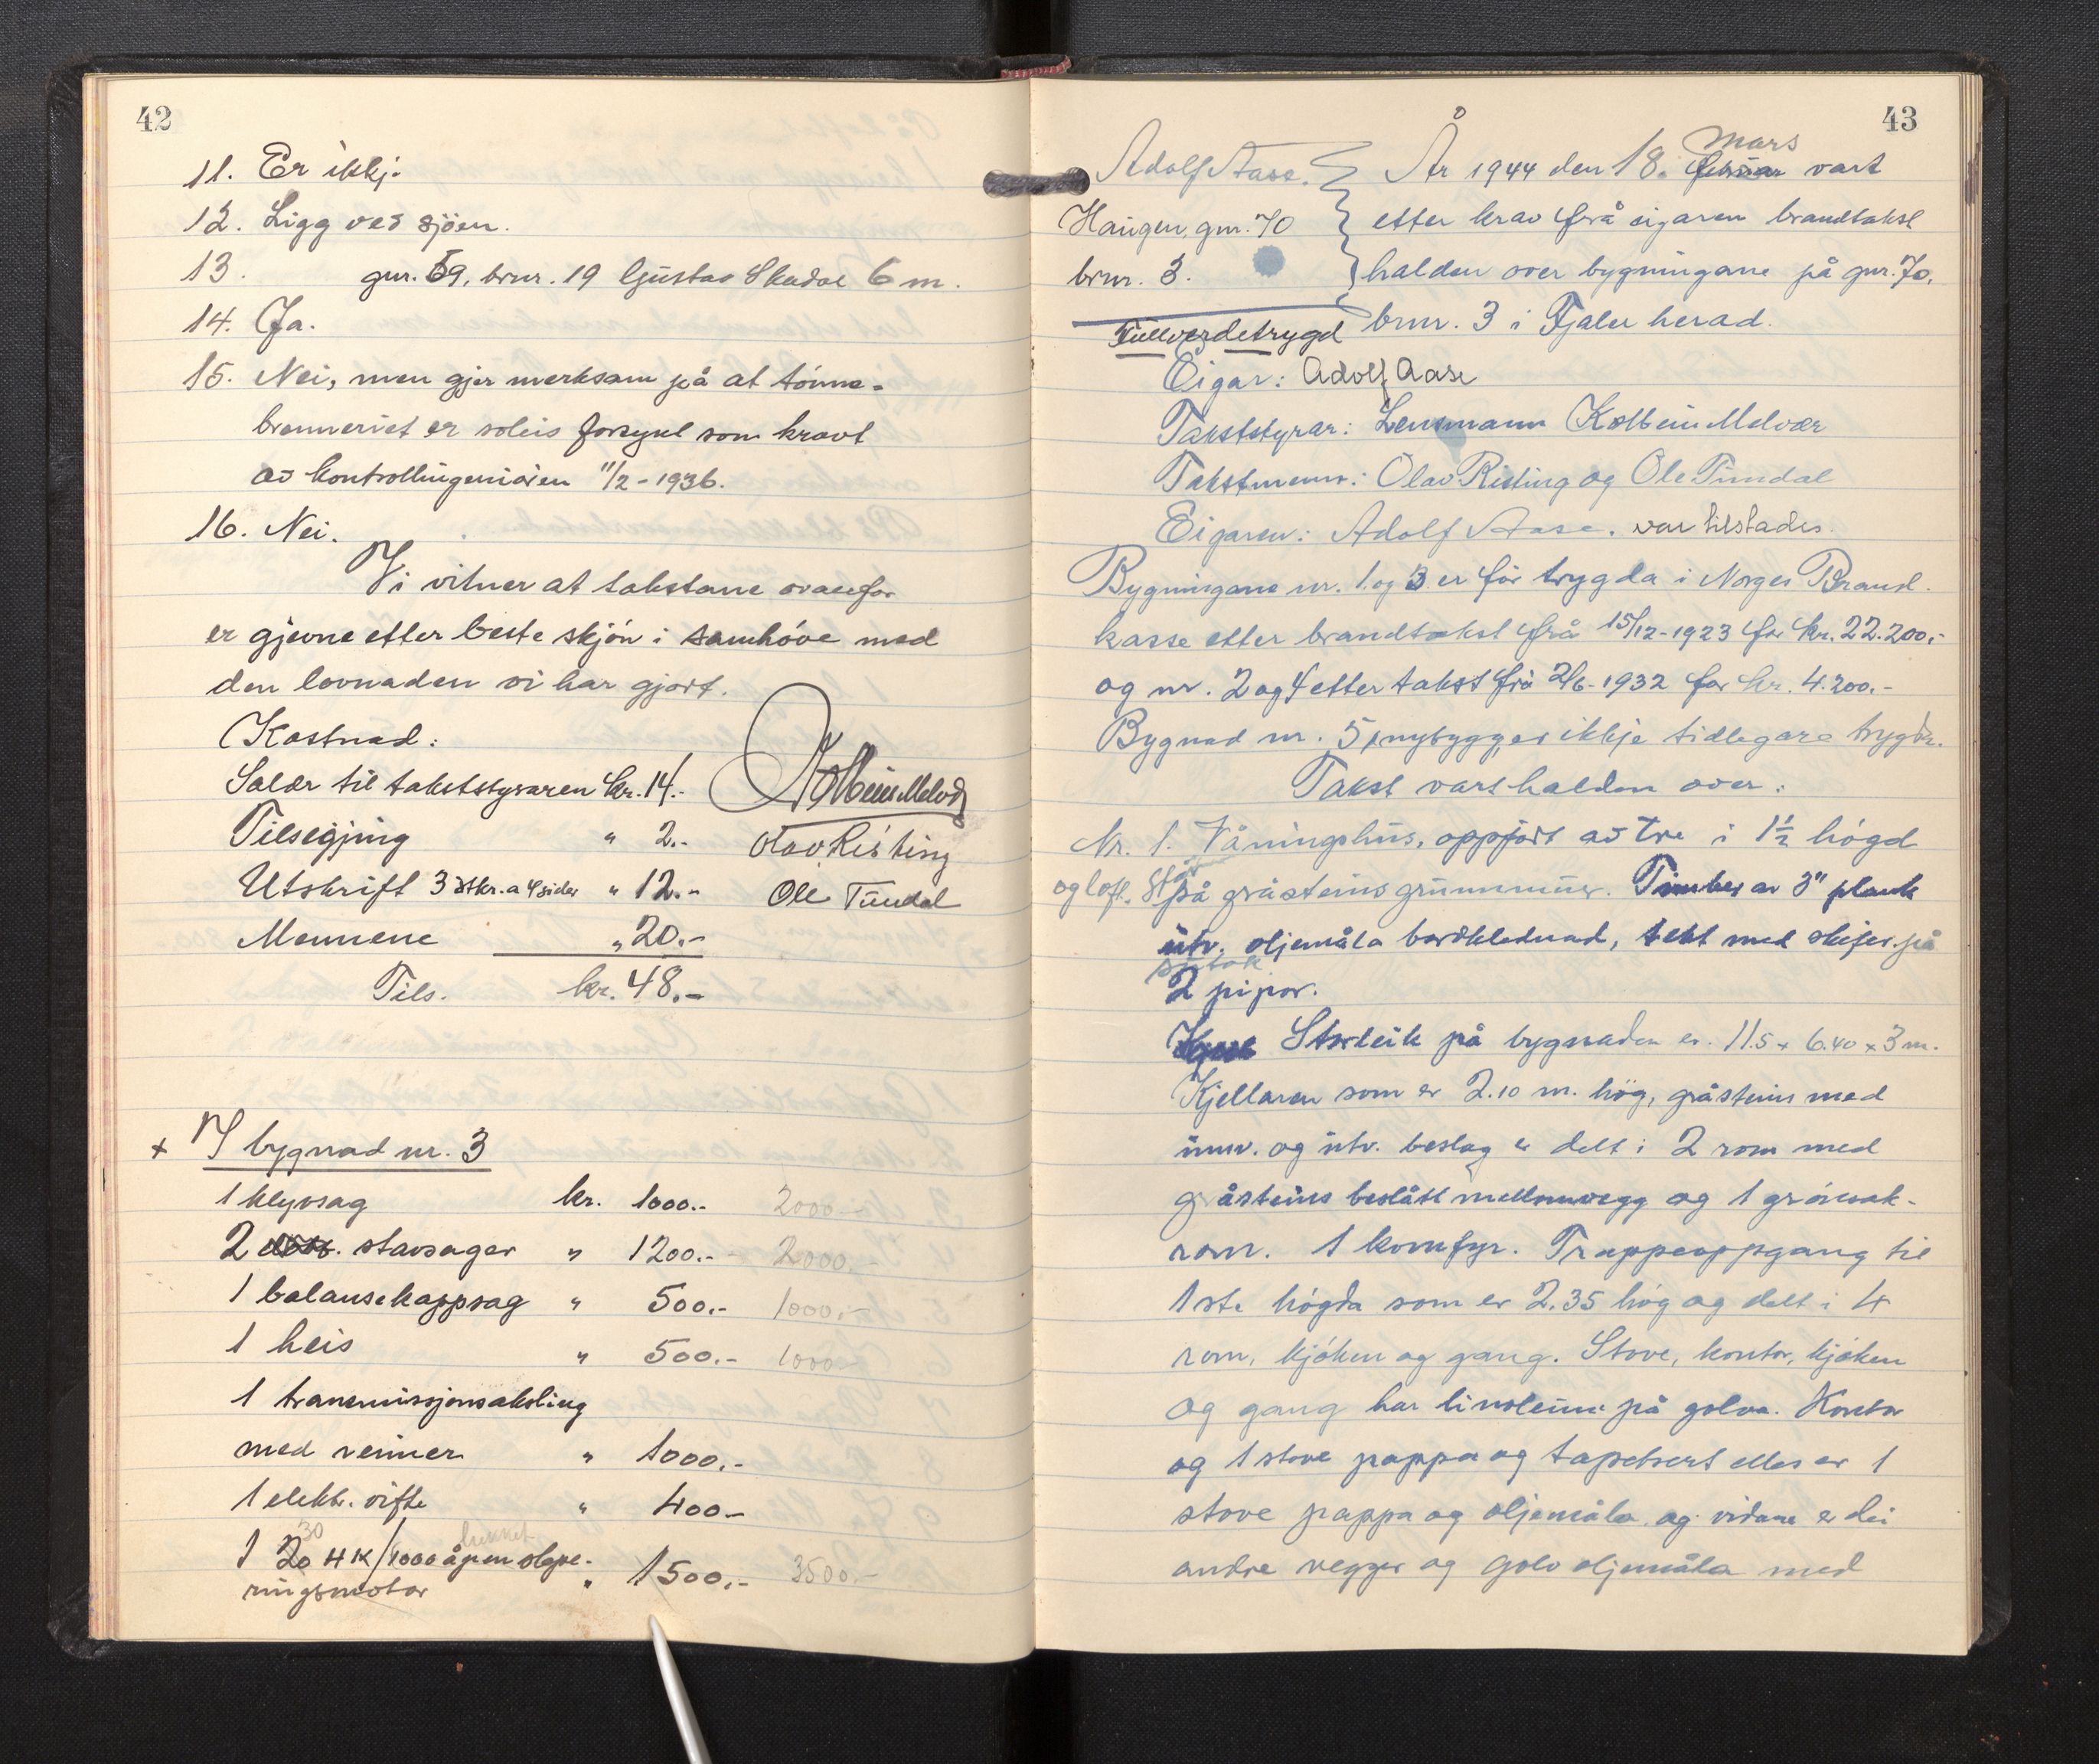 42
11. Er ikkj.
12. Ligg ved sjøen.
13. gnr. 59, bnr. 19 Gustav Skadal 6 m.
14. Ja.
15. Nei, men gjer merksam på at tønne-
brenneriet er soleis forsynt som kravt
av kontrollingeniøren 11/2-1936.
16. Nei.
Vi vitner at takstane ovanfor
er gjevne etter beste skjøn i samhøve med
den lovnaden vi har gjort.
Kostnad:
Salær til takststyraren kr. 14.-
Kolbein Melvær
Tilseigjing " 2.-
Olav Risting
Utskrift 3 stkr. a 4 sider " 12.-
Ole Tundal
Mennene " 20.-
Tils. kr. 48.-
+ I bygnad nr. 3
1 klyvsag kr. 1000.- 2000.-
2 stavsager " 1200.- 2000.-
1 balansekappsag " 500.- 1000.-
1 heis " 500.- 1000.-
1 transmissjonsaksling
med reimer " 1000.-
1 elektr. vifte " 400.-
30 lukket
1 20 HK/1000 åpen slepe-
ringsmotor " 1500.- 3500.-
43
Adolf Aase.
Haugen, gnr. 70
brnr. 3.
Fullverdetrygd
mars
År 1944 den 18. februar vart
etter krav frå eigaren brandtakst
halden over bygningane på gnr. 70,
brnr. 3 i Fjaler herad.
Eigar: Adolf Aase
Takststyrar: Lensmann Kolbein Melvær
Takstmenn: Olav Risting og Ole Tundal
Eigaren: Adolf Aase. var tilstades.
Bygningane nr. 1 og 3 er før trygda i Norges Brand-
kasse etter brandtakst frå 15/12-1923 for kr. 22.200.-
og nr. 2 og 4 etter takst frå 2/6-1932 for kr. 4.200.-
Bygnad nr. 5, nybygg er ikkje tidlegare trygda.
Takst vart halden over:
Nr. 1. Våningshus, oppført av tre i 1½ høgd
og loft. Står på gråsteins grunnmur. Timber av 3" plank
utv. oljemåla bordklednad, tekt med skifer på
sutak
2 pipor.
Storleik på bygnaden er. 11.5 x 6.40 x 3 m.
Kjellaren som er 2.10 m. høg, gråsteins med
innv. og utv. beslag er delt i 2 rom med
gråsteins beslått mellomvegg og 1 grønsak-
rom. 1 komfyr. Trappeoppgang til
1ste høgda som er 2.35 høg og delt i 4
rom, kjøken og gang. Stove, kontor, kjøken
og gang har linoleum på golva. Kontor
og 1 stove pappa og tapetsert elles er 1
stove pappa og oljemåla og vidare er dei
andre vegger og golv oljemåla med